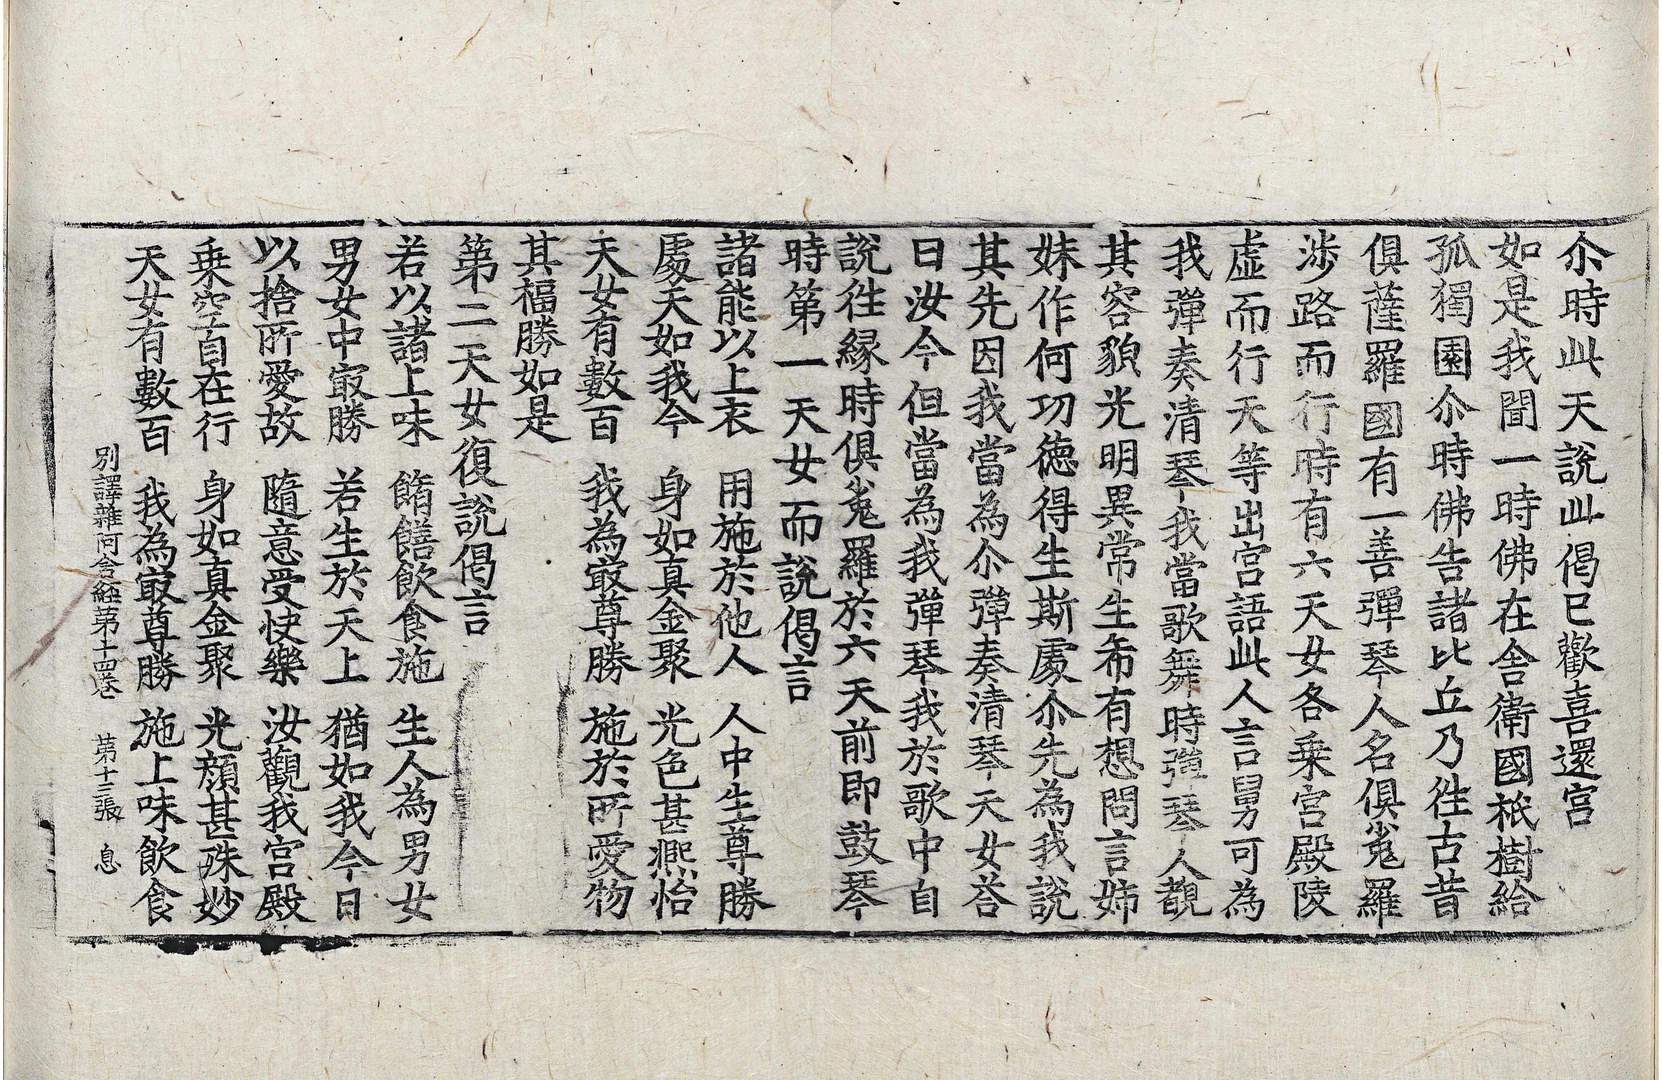 尒時此天說此偈已歡喜還宮
如是我聞一時佛在舍衛國祇樹給
孤獨園尒時佛告諸比丘乃徃古昔
俱薩羅國有一善彈琴人名俱㝹羅
涉路而行時有六天女各乗宮殿陵
虛而行天等出宮語此人言舅可為
我彈奏清琴我當歌舞時彈琴人覩
其容貌光明異常生希有想問言姉
妹作何功德得生斯處尒先為我說
其先因我當為尒彈奏清琴天女荅
曰汝今但當為我彈琴我於歌中自
說徃縁時俱㝹羅於六天前即鼓琴
時第一天女而說偈言
諸能以上衣 用施於他人 人中生尊勝
處天如我今 身如真金聚 光色甚熈怡
天女有數百 我為㝡尊勝 施於所愛物
其福勝如是
第二天女復說偈言
若以諸上味 餚饍飲食施 生人為男女
男女中㝡勝 若生於天上 猶如我今日
以捨所愛故 隨意受快樂 汝觀我宮殿
乗空自在行 身如真金聚 光顔甚殊妙
天女有數百 我為㝡尊勝 施上味飲食
別譯雜阿含經第十四卷 第十三張 息